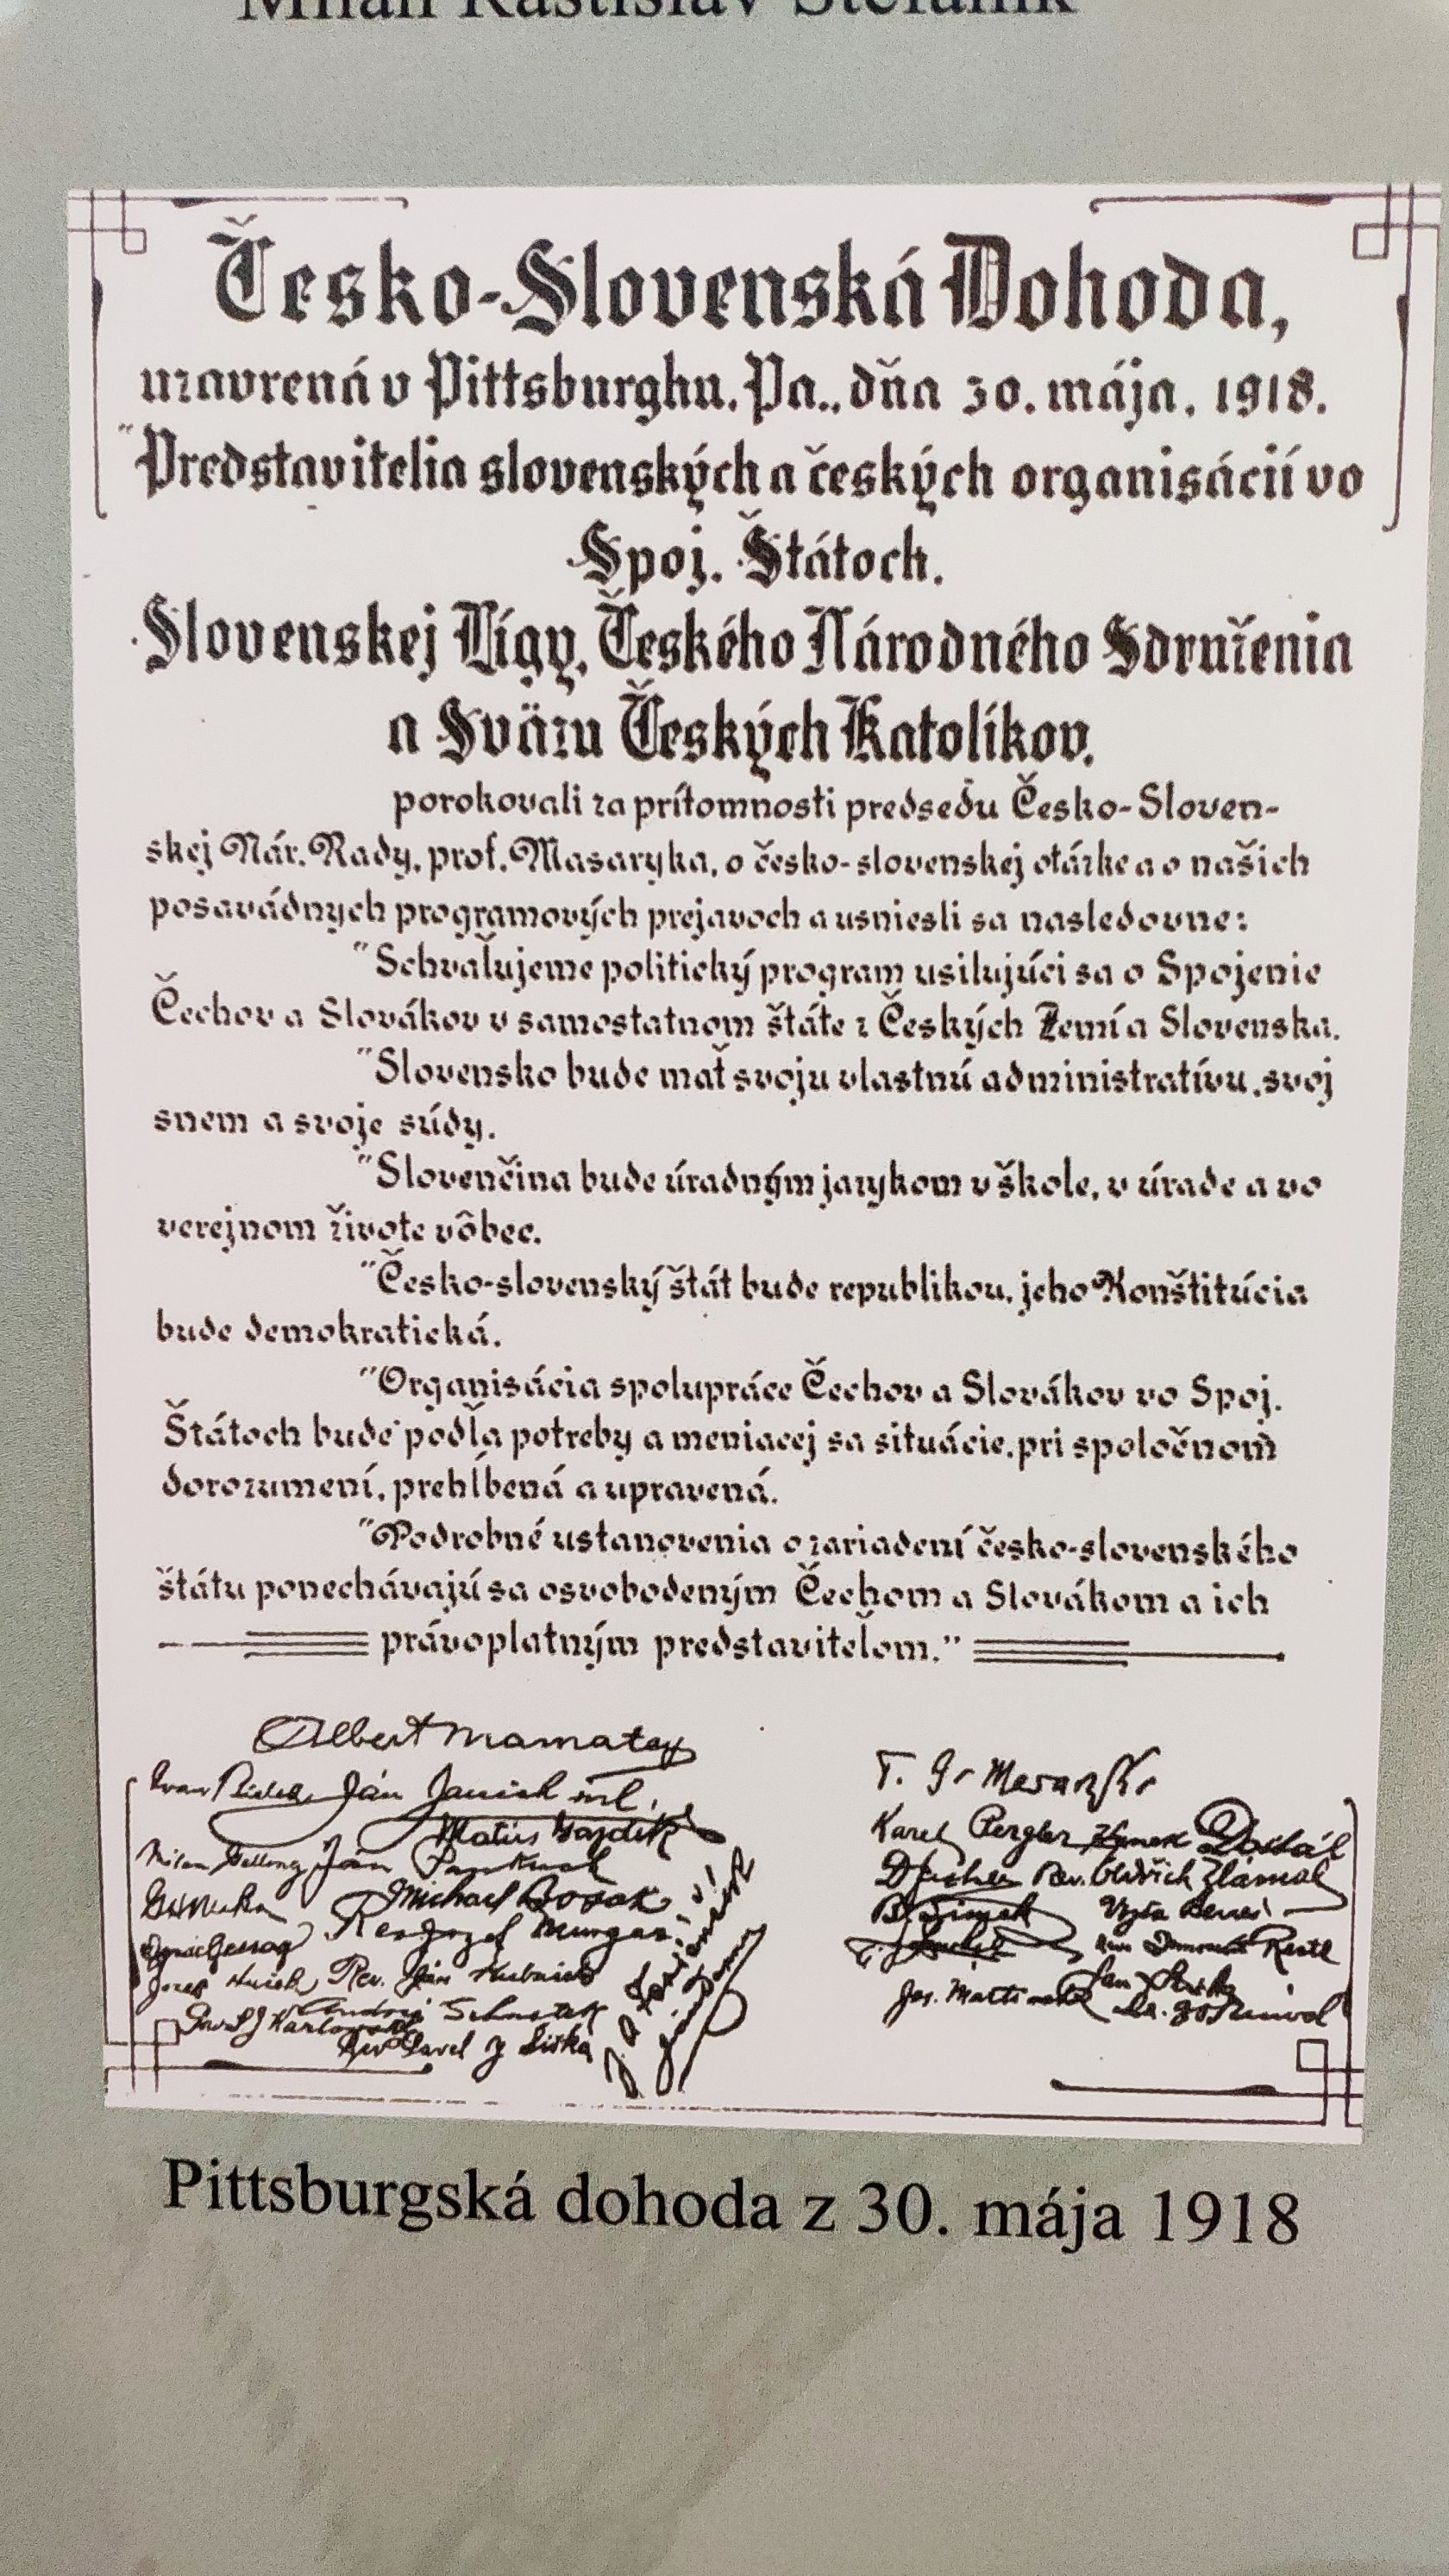 Milan Rastislav Štefánik
Česko-Slovenská Dohoda,
uzavrená v Pittsburghu, Pa., dňa 30. mája, 1918.
"Predstavitelia slovenských a českých organisácií vo
Spoj. Štátoch,
Slovenskej Lígy, Českého Národného Sdruženia
a Sväzu Českých Katolíkov,
porokovali za prítomnosti predsedu Česko-Sloven-
skej Nár. Rady, prof. Masaryka, o česko-slovenskej otázke a o našich
posavádnych programových prejavoch a usniesli sa nasledovne:
"Schvaľujeme politický program usilujúci sa o Spojenie
Čechov a Slovákov v samostatnom štáte z Českých Zemí a Slovenska.
"Slovensko bude mať svoju vlastnú administratívu, svoj
snem a svoje súdy.
"Slovenčina bude úradným jazykom v škole, v úrade a vo
verejnom živote vôbec.
"Česko-slovenský štát bude republikou, jeho Konštitúcia
bude demokratická.
"Organisácia spolupráce Čechov a Slovákov vo Spoj.
Štátoch bude podľa potreby a meniacej sa situácie, pri spoločnom
dorozumení, prehĺbená a upravená.
"Podrobné ustanovenia o zariadení česko-slovenského
štátu ponechávajú sa osvobodeným Čechom a Slovákom a ich
právoplatným predstaviteľom."
Albert Mamatey
T. G. Masaryk
Ján Janček ml.
Karel Pergler Dostál
Matúš Gajdík
Rev. Oldřich Zlámal
Michael Bosák
Vojta Beneš
Rev. Jozef Murgaš
Rev. Ján Kubašek
Andrej Schustek
Rev. Pavel J Šiška
Pittsburgská dohoda z 30. mája 1918